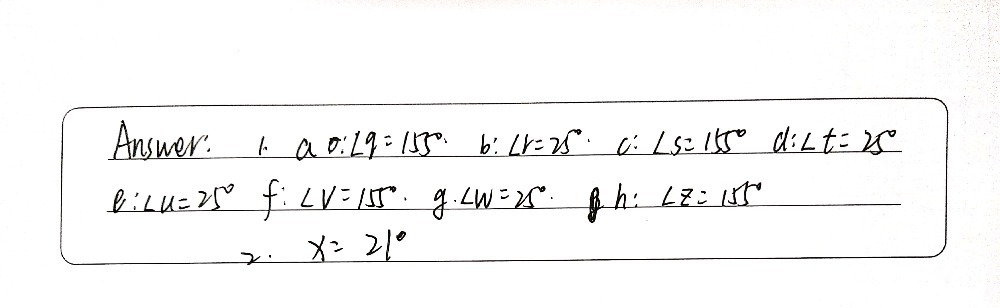 Answer: 1. a ∠q=155°. b: ∠r=25°. c: ∠s=155° d: ∠t=25°
e: ∠u=25° f: ∠V=155°. g. ∠W=25°. h: ∠z=155°
2. x=21°